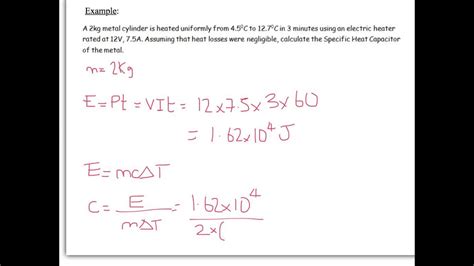 Example:
A 2kg metal cylinder is heated uniformly from 4.5⁰C to 12.7⁰C in 3 minutes using an electric heater
rated at 12V, 7.5A. Assuming that heat losses were negligible, calculate the Specific Heat Capacitor
of the metal.
m = 2kg
E = Pt = VIt = 12 x 7.5 x 3 x 60
= 1.62 x 10⁴ J
E = mc△T
C = E/m△T = 1.62 x 10⁴/2 x (